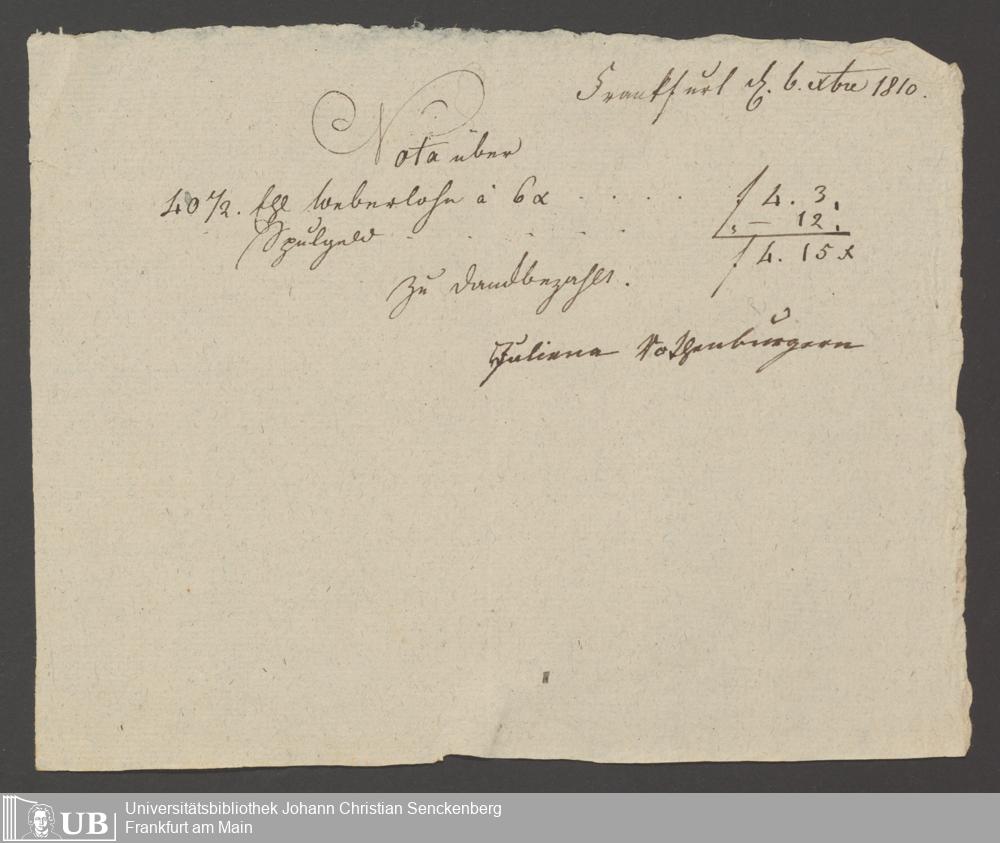 Frankfurt d. 6. xbre 1810.
Nota über
40 1/2. Ell Weberlohn à 6 x . . . . f 4. 3.
Spulgeld . . . . . . — 12.
f 4. 15 x
zu Dank bezahlt.
Juliena Rothenburgern
UB
Universitätsbibliothek Johann Christian Senckenberg
Frankfurt am Main